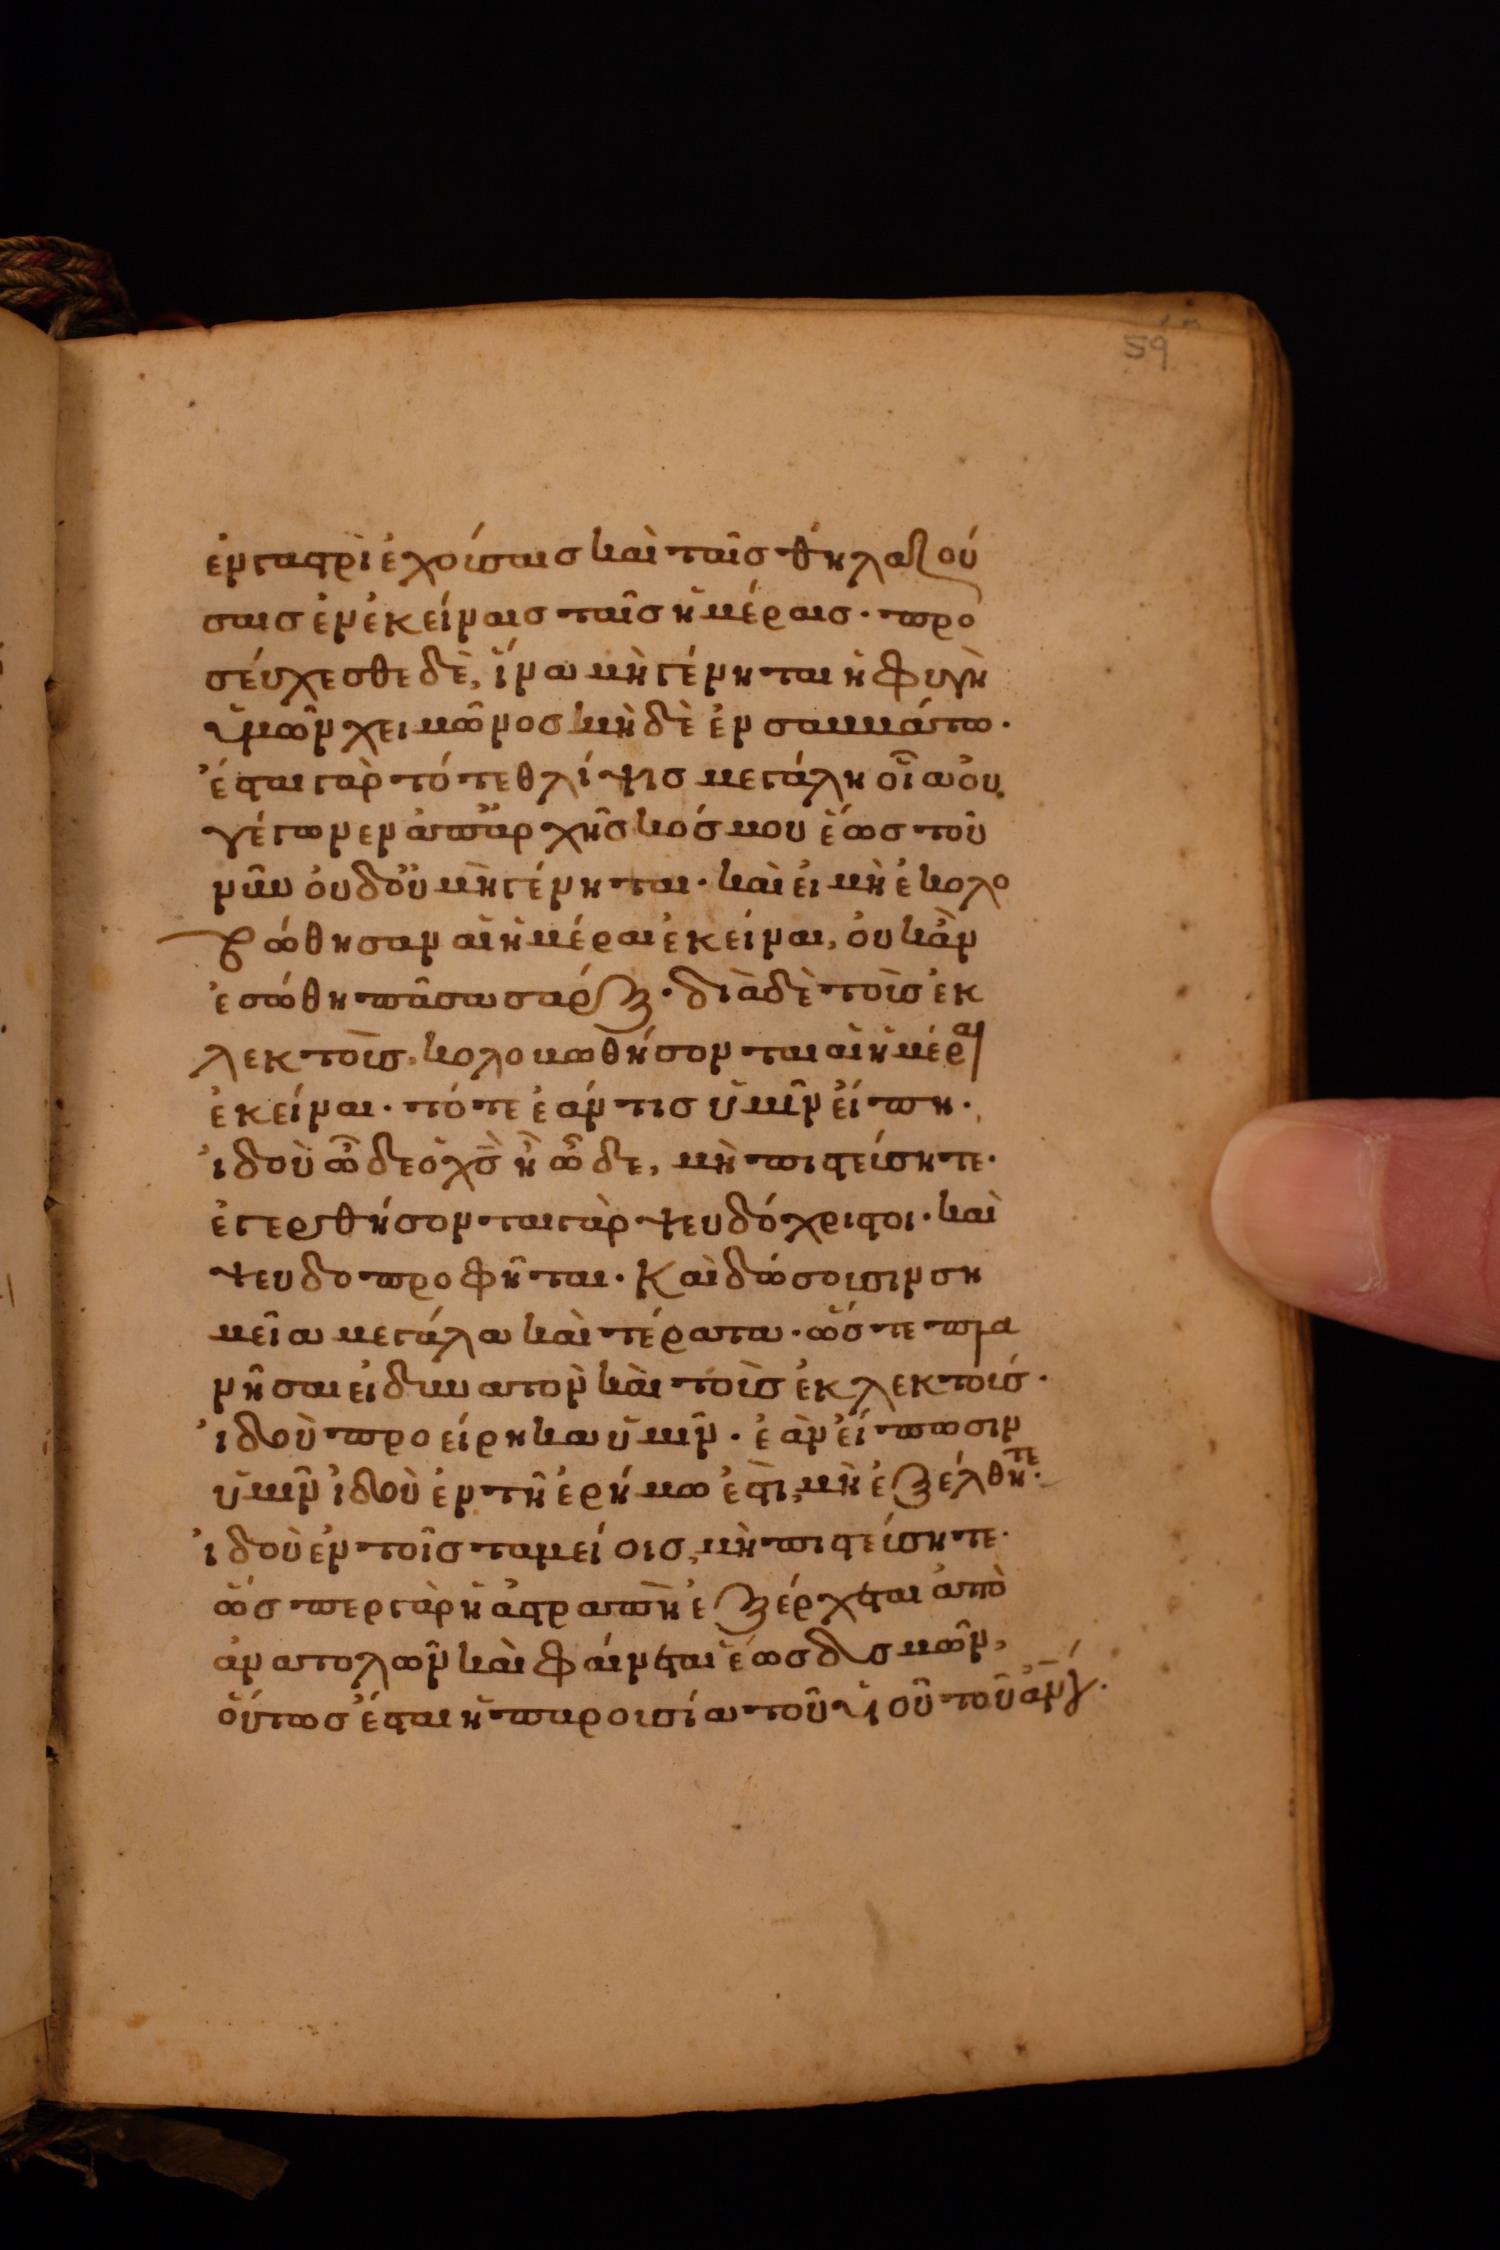 59
ἐν γαστρὶ ἐχούσαις καὶ ταῖς θηλαζού
σαις ἐν ἐκείναις ταῖς ἡμέραις· προ
σεύχεσθε δὲ, ἵνα μὴ γένηται ἡ φυγὴ
ὑμῶν χειμῶνος μηδὲ ἐν σαββάτω·
ἔσται γὰρ τότε θλίψις μεγάλη οἵα οὐ
γέγωνεν ἀπ' ἀρχῆς κόσμου ἕως τοῦ
νῦν οὐδ' οὐ μὴ γένηται· καὶ εἰ μὴ ἐκολο
βώθησαν αἱ ἡμέραι ἐκείναι, οὐκ ἂν
ἐσώθη πᾶσα σάρξ· διὰ δὲ τοὺς ἐκ
λεκτοὺς, κολοβωθήσονται αἱ ἡμέραι
ἐκείναι· τότε ἐάν τις ὑμῖν εἴπη·
ἰδοὺ ὧδε ὁ χς ἢ ὧδε, μὴ πιστεύσητε·
ἐγερθήσονται γὰρ ψευδόχριστοι· καὶ
ψευδοπροφῆται· Καὶ δώσουσιν ση
μεῖα μεγάλα καὶ τέρατα· ὥστε πλα
νῆσαι εἰ δυνατὸν καὶ τοὺς ἐκλεκτούς·
ἰδοὺ προείρηκα ὑμῖν· ἐὰν εἴπωσιν
ὑμῖν ἰδοὺ ἐν τῆ ἐρήμω ἐστὶ, μὴ ἐξέλθητε·
ἰδοὺ ἐν τοῖς ταμείοις, μὴ πιστεύσητε·
ὥσπερ γὰρ ἡ ἀστραπὴ ἐξέρχεται ἀπὸ
ἀνατολῶν καὶ φαίνεται ἕως δυσμῶν,
οὕτως ἔσται ἡ παρουσία τοῦ υἱοῦ τοῦ ἀνου·